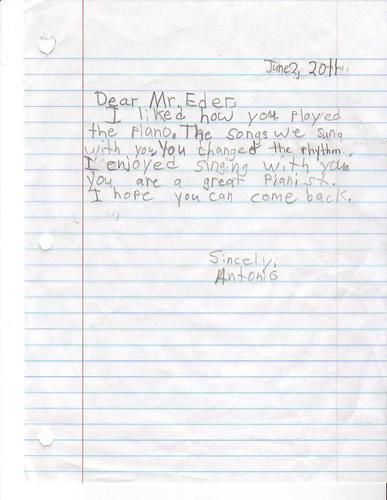 June 2, 2011
Dear Mr. Eder,
I liked how you played
the piano. The songs we sung
with you, you changed the rhythm.
I enjoyed singing with you
you are a great Pianist.
I hope you can come back.
Sincely,
Antonio